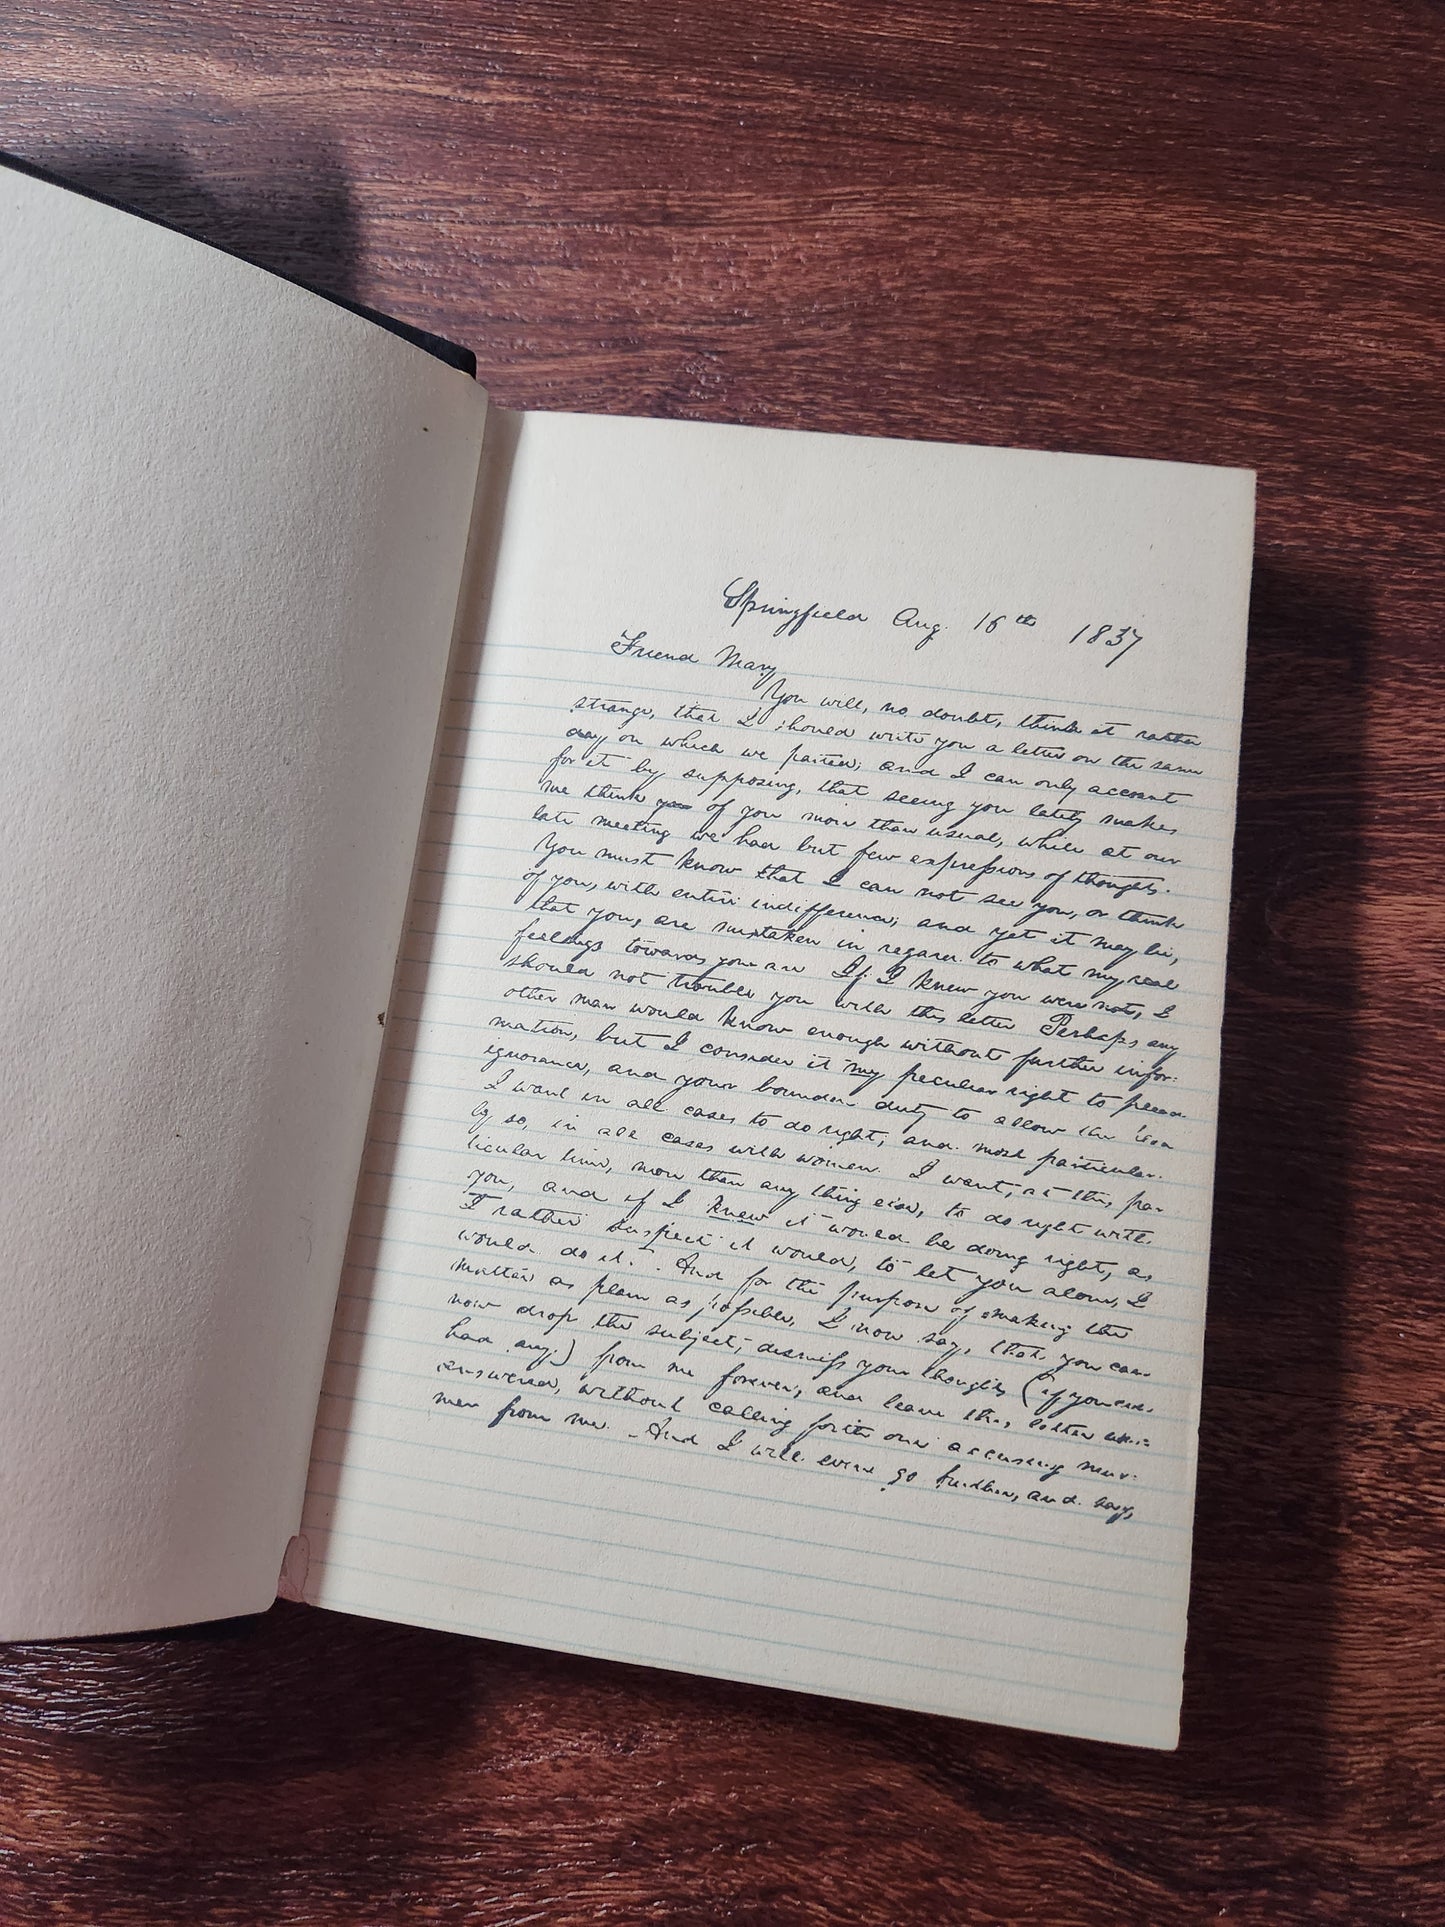 Springfield Aug. 16th 1837
Friend Mary
You will, no doubt, think it rather
strange, that I should write you a letter on the same
day on which we parted; and I can only account
for it by supposing, that seeing you lately makes
me think you of you more than usual, while at our
late meeting we had but few expressions of thoughts.
You must know that I can not see you, or think
of you, with entire indifference; and yet it may be,
that you, are mistaken in regard to what my real
feelings towards you are If I knew you were not, I
should not trouble you with this letter Perhaps any
other man would know enough without further infor-
mation, but I consider it my peculiar right to plead
ignorance, and your bounden duty to allow the plea
I want in all cases to do right; and most particular-
ly so, in all cases with women. I want, at this par-
ticular time, more than any thing else, to do right with
you, and if I knew it would be doing right, as
I rather suspect it would, to let you alone, I
would do it. And for the purpose of making the
matter as plain as possible, I now say, that you can
now drop the subject, dismiss your thoughts (if you ever
had any) from me forever, and leave this letter un-
answered, without calling forth one accusing mur-
mer from me. And I will even go further, and say,